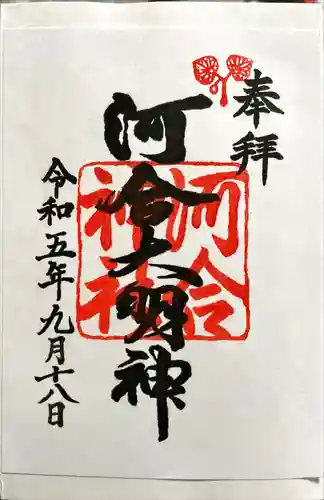 奉拝
河合大明神
河合
神社
令和五年九月十八日